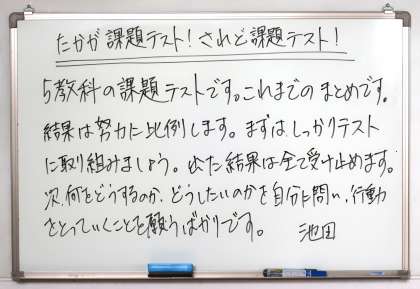 たかが課題テスト!されど課題テスト!
5教科の課題テストです。これまでのまとめです。
結果は努力に比例します。まずはしっかりテスト
に取り組みましょう。出た結果は全て受け止めます。
次、何をどうするのか、どうしたいのかを自分に問い、行動
をとっていくことを願うばかりです。 池田